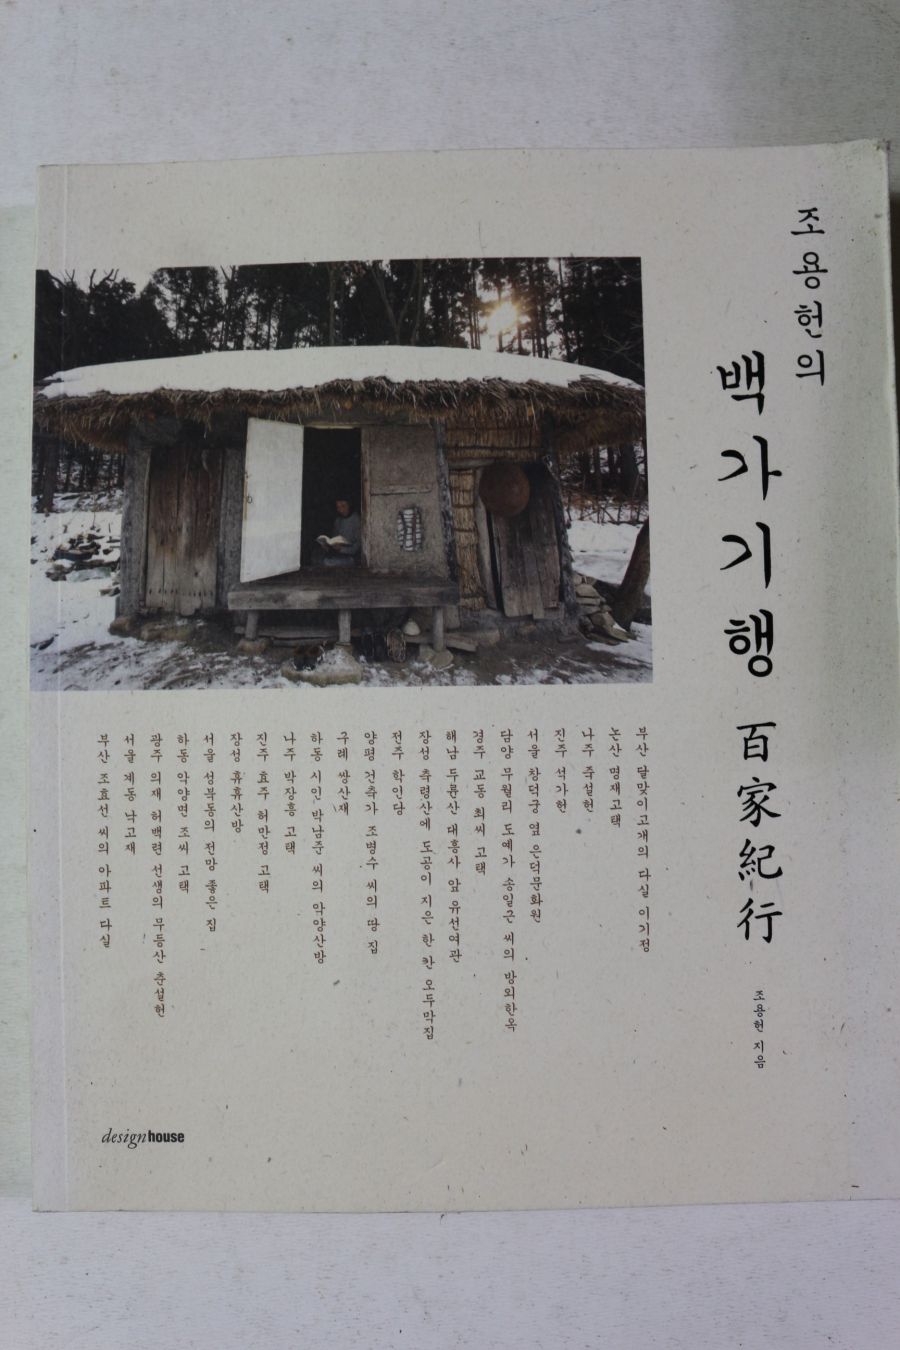 조용헌의
백가기행 百家紀行
조용헌 지음
부산 달맞이고개의 다실 이기정
논산 명재고택
나주 죽설헌
진주 석가헌
서울 창덕궁 옆 은덕문화원
담양 무월리 도예가 송일근 씨의 방외한옥
경주 교동 최씨 고택
해남 두륜산 대흥사 앞 유선여관
장성 축령산에 도공이 지은 한 칸 오두막집
전주 학인당
양평 건축가 조병수 씨의 땅 집
구례 쌍산재
하동 시인 박남준 씨의 악양산방
나주 박장흥 고택
진주 효주 허만정 고택
장성 휴휴산방
서울 성북동의 전망 좋은 집
하동 악양면 조씨 고택
광주 의재 허백련 선생의 무등산 춘설헌
서울 계동 낙고재
부산 조효선 씨의 아파트 다실
designhouse